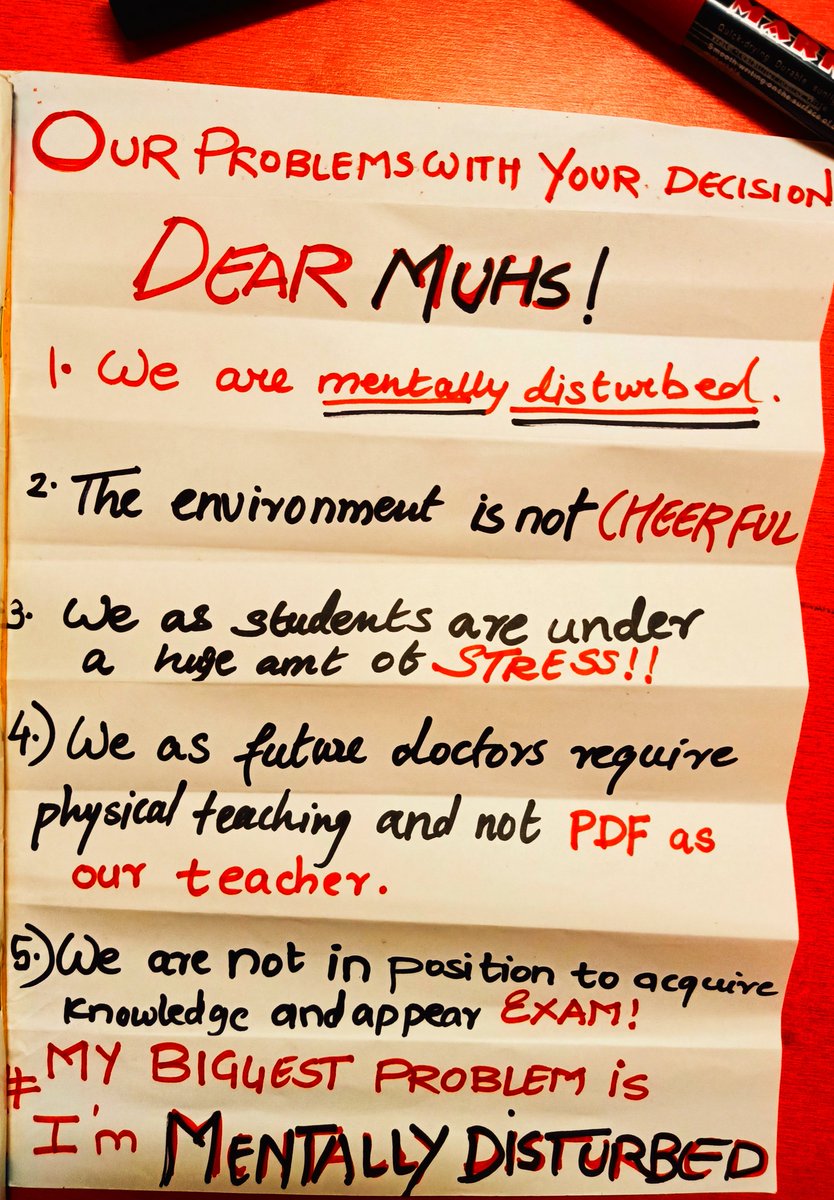 MARK
Quick-drying. Durable
Smooth writing on the surface of
OUR PROBLEMS WITH YOUR DECISION
DEAR MUHS!
1. We are mentally disturbed.
2. The environment is not CHEERFUL
3. We as students are under
a huge amt of STRESS!!
4.) We as future doctors require
physical teaching and not PDF as
our teacher.
5.) We are not in position to acquire
knowledge and appear EXAM!
# MY BIGGEST PROBLEM is
I'm MENTALLY DISTURBED